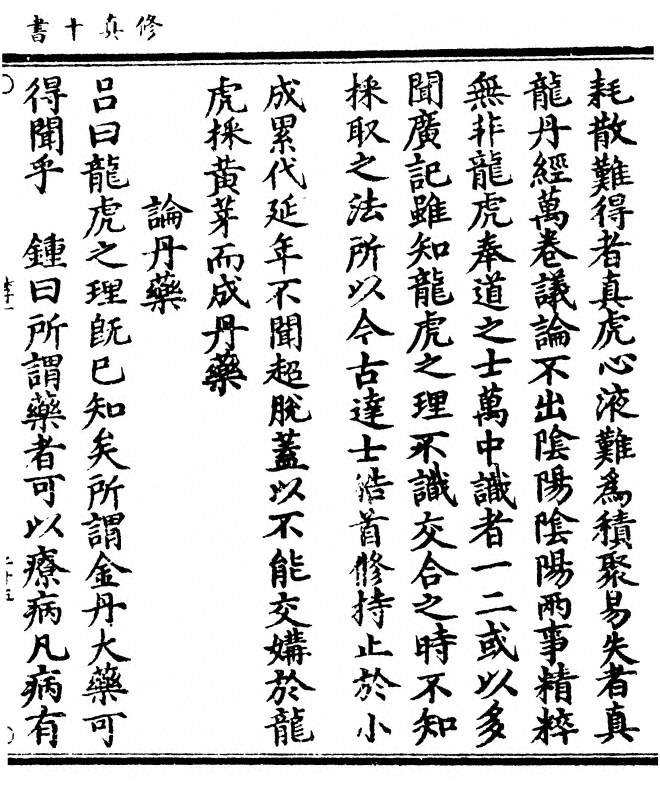 修真十書
耗散難得者真虎心液難為積聚易失者真
龍丹經萬卷議論不出陰陽陰陽兩事精粹
無非龍虎奉道之士萬中識者一二或以多
聞廣記雖知龍虎之理不識交合之時不知
採取之法所以今古達士皓首修持止於小
成累代延年不聞超脫蓋以不能交媾於龍
虎採黃芽而成丹藥
論丹藥
呂曰龍虎之理既已知矣所謂金丹大藥可
得聞乎　鍾曰所謂藥者可以療病凡病有